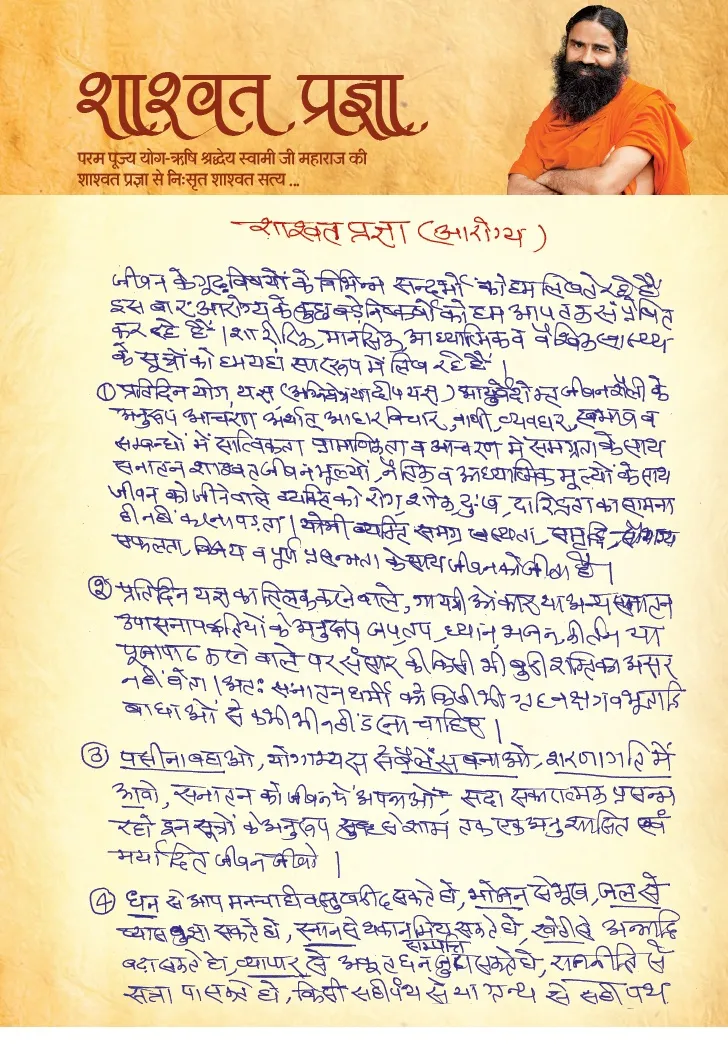 शाश्वत प्रज्ञा
परम पूज्य योग-ऋषि श्रद्धेय स्वामी जी महाराज की
शाश्वत प्रज्ञा से निःसृत शाश्वत सत्य ...
शाश्वत प्रज्ञा (आरोग्य)
जीवन के गूढ़ विषयों के विभिन्न सन्दर्भों को हम लिखते रहे हैं
इस बार आरोग्य के कुछ बड़े निष्कर्षों को हम आप तक संप्रेषित
कर रहे हैं । शारीरिक, मानसिक, आध्यात्मिक व वैश्विक स्वास्थ्य
के सूत्रों को हम यहां साररूप में लिख रहे हैं ।
① प्रतिदिन योग, यज्ञ (अग्निहोत्र या दीप यज्ञ) आयुर्वेदोक्त जीवन शैली के
अनुरूप आचरण अर्थात् आहार विचार, वाणी, व्यवहार, स्वभाव व
सम्बन्धों में सात्विकता प्रामाणिकता व आचरण में समग्रता के साथ
सनातन शाश्वत जीवन मूल्यों, नैतिक व आध्यात्मिक मूल्यों के साथ
जीवन को जीने वाले व्यक्ति को रोग, शोक, दुःख, दारिद्रता का सामना
ही नहीं करना पड़ता । योगी व्यक्ति समग्र स्वस्थता, समृद्धि, सौभाग्य
सफलता, विजय व पूर्ण प्रसन्नता के साथ जीवन को जीता है ।
② प्रतिदिन यज्ञ का तिलक करने वाले, गायत्री ओंकार या अन्य सनातन
उपासना पद्धतियों के अनुरूप जप, तप, ध्यान, भजन, कीर्तन या
पूजा पाठ करने वाले पर संसार की किसी भी बुरी शक्ति का असर
नहीं होता । अतः सनातन धर्मी को किसी भी ग्रह नक्षत्र व भूतादि
बाधाओं से कभी भी नहीं डरना चाहिए ।
③ पसीना बहाओ, योगाभ्यास से बैलेंस बनाओ, शरणागति में
आवो, सनातन को जीवन में अपनाओ, सदा सकारात्मक प्रसन्न
रहो इन सूत्रों के अनुरूप सुबह से शाम तक एक अनुशासित एवं
मर्यादित जीवन जीवो ।
④ धन से आप मनचाही वस्तु खरीद सकते हो, भोजन से भूख, जल से
प्यास बुझा सकते हो, स्नान से थकान मिटा सकते हो, खेती से अन्नादि
सम्पत्ति
बढ़ा सकते हो, व्यापार से अकूत धन जुटा सकते हो, राजनीति से
सत्ता पा सकते हो, किसी सही पंथ से या ग्रन्थ से सही पथ